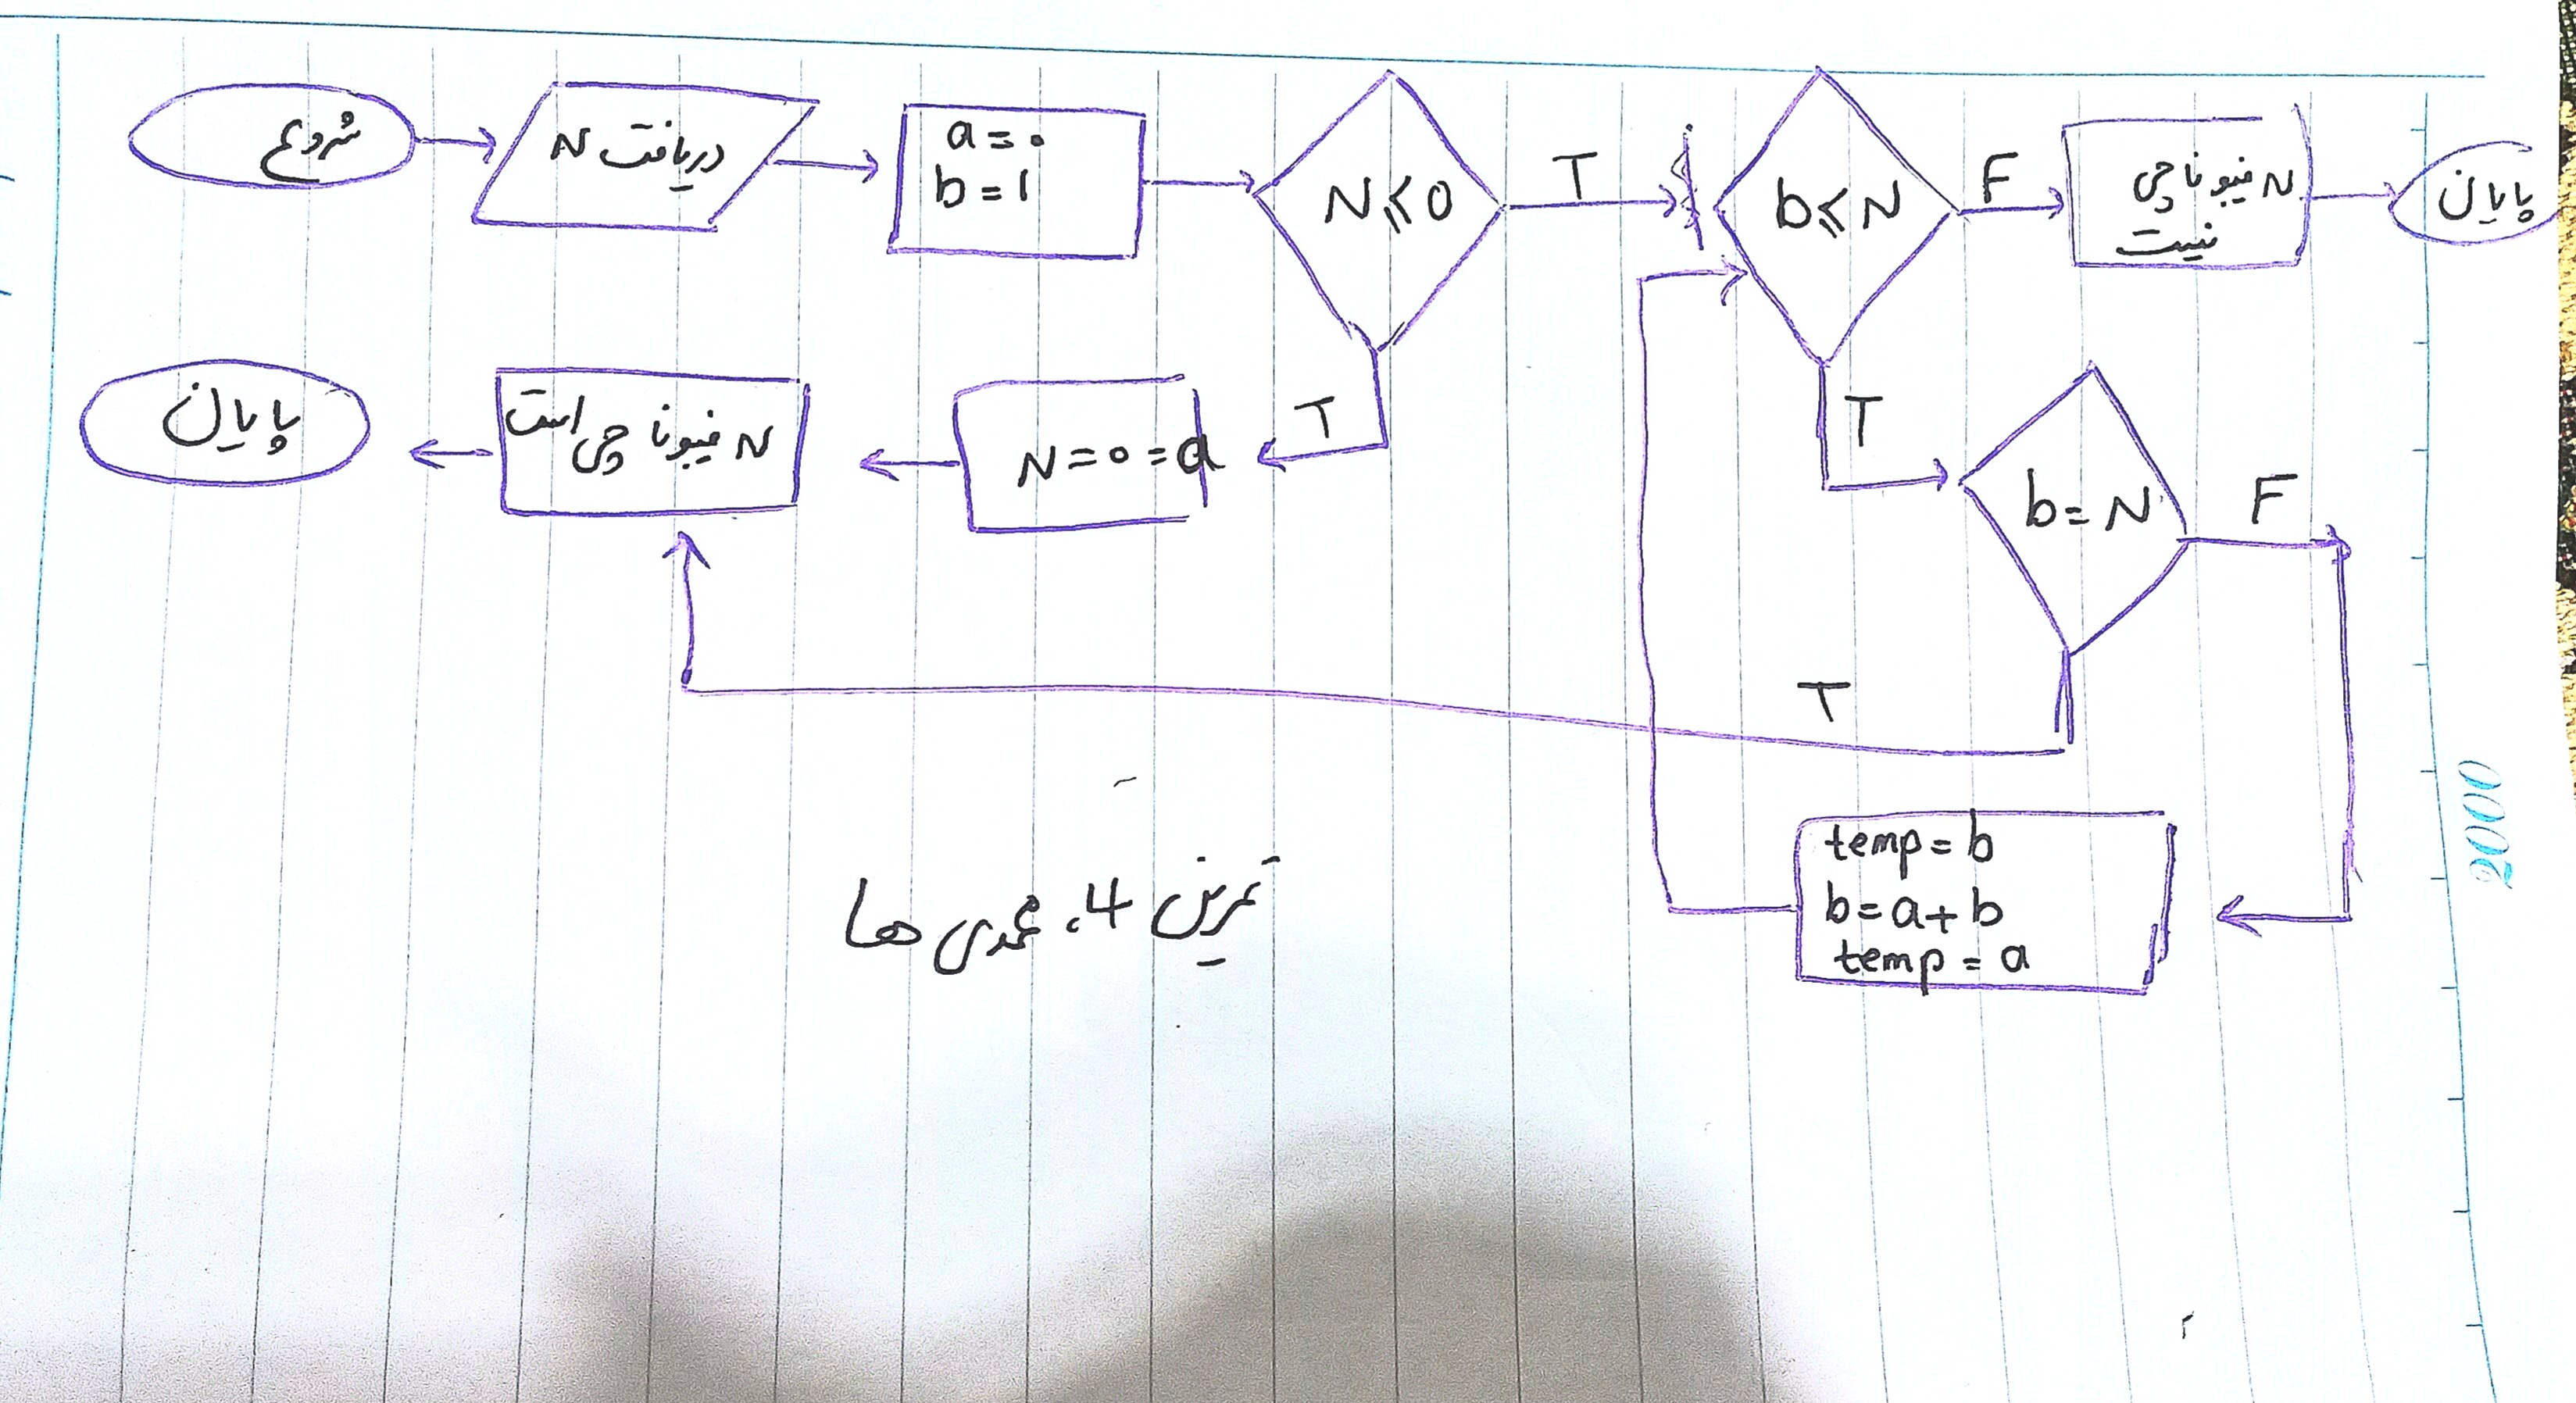 شروع
دریافت N
a = 0
b = 1
N ≤ 0
T
b ≤ N
F
N فیبوناچی
نیست
پایان
T
N = 0 = a
N فیبوناچی است
پایان
T
b = N
F
T
temp = b
b = a + b
temp = a
تمرین 4، محمدی ها
2000